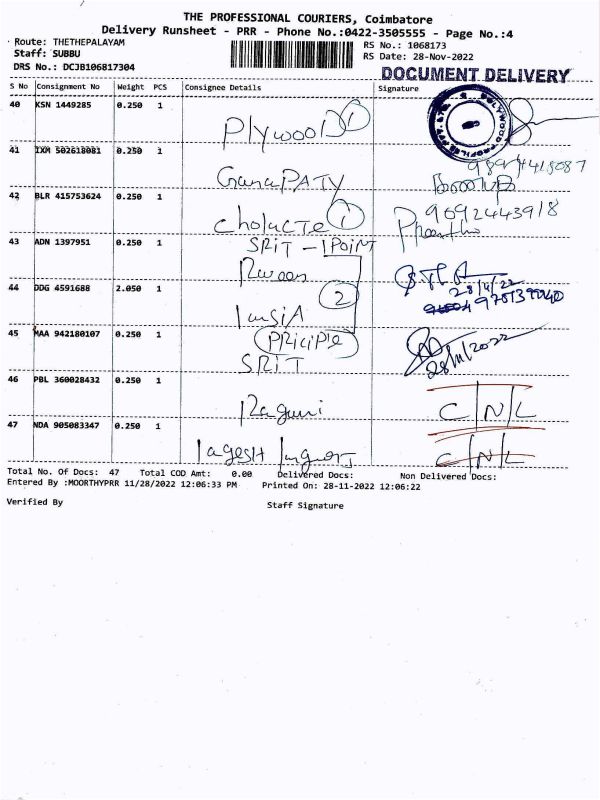 THE PROFESSIONAL COURIERS, Coimbatore
Delivery Runsheet - PRR - Phone No.:0422-3505555 - Page No.:4
Route: THETHEPALAYAM
Staff: SUBBU
DRS No.: DCJB106817304
RS No.: 1068173
RS Date: 28-Nov-2022
DOCUMENT DELIVERY
S No Consignment No Weight PCS Consignee Details Signature
40 KSN 1449285 0.250 1
Plywood 1
41 IXM 502618081 0.250 1
GanaPATY
42 BLR 415753624 0.250 1
CholacTe 1 9692443918
43 ADN 1397951 0.250 1
SRiT - 1 POiNT
44 DDG 4591688 2.050 1
2
45 MAA 942180107 0.250 1
PRiciPle
SRiT 28/11/2022
46 PBL 360028432 0.250 1
C/N/L
47 NDA 905083347 0.250 1
C/N/L
Total No. Of Docs: 47 Total COD Amt: 0.00 Delivered Docs: Non Delivered Docs:
Entered By :MOORTHYPRR 11/28/2022 12:06:33 PM Printed On: 28-11-2022 12:06:22
Verified By Staff Signature